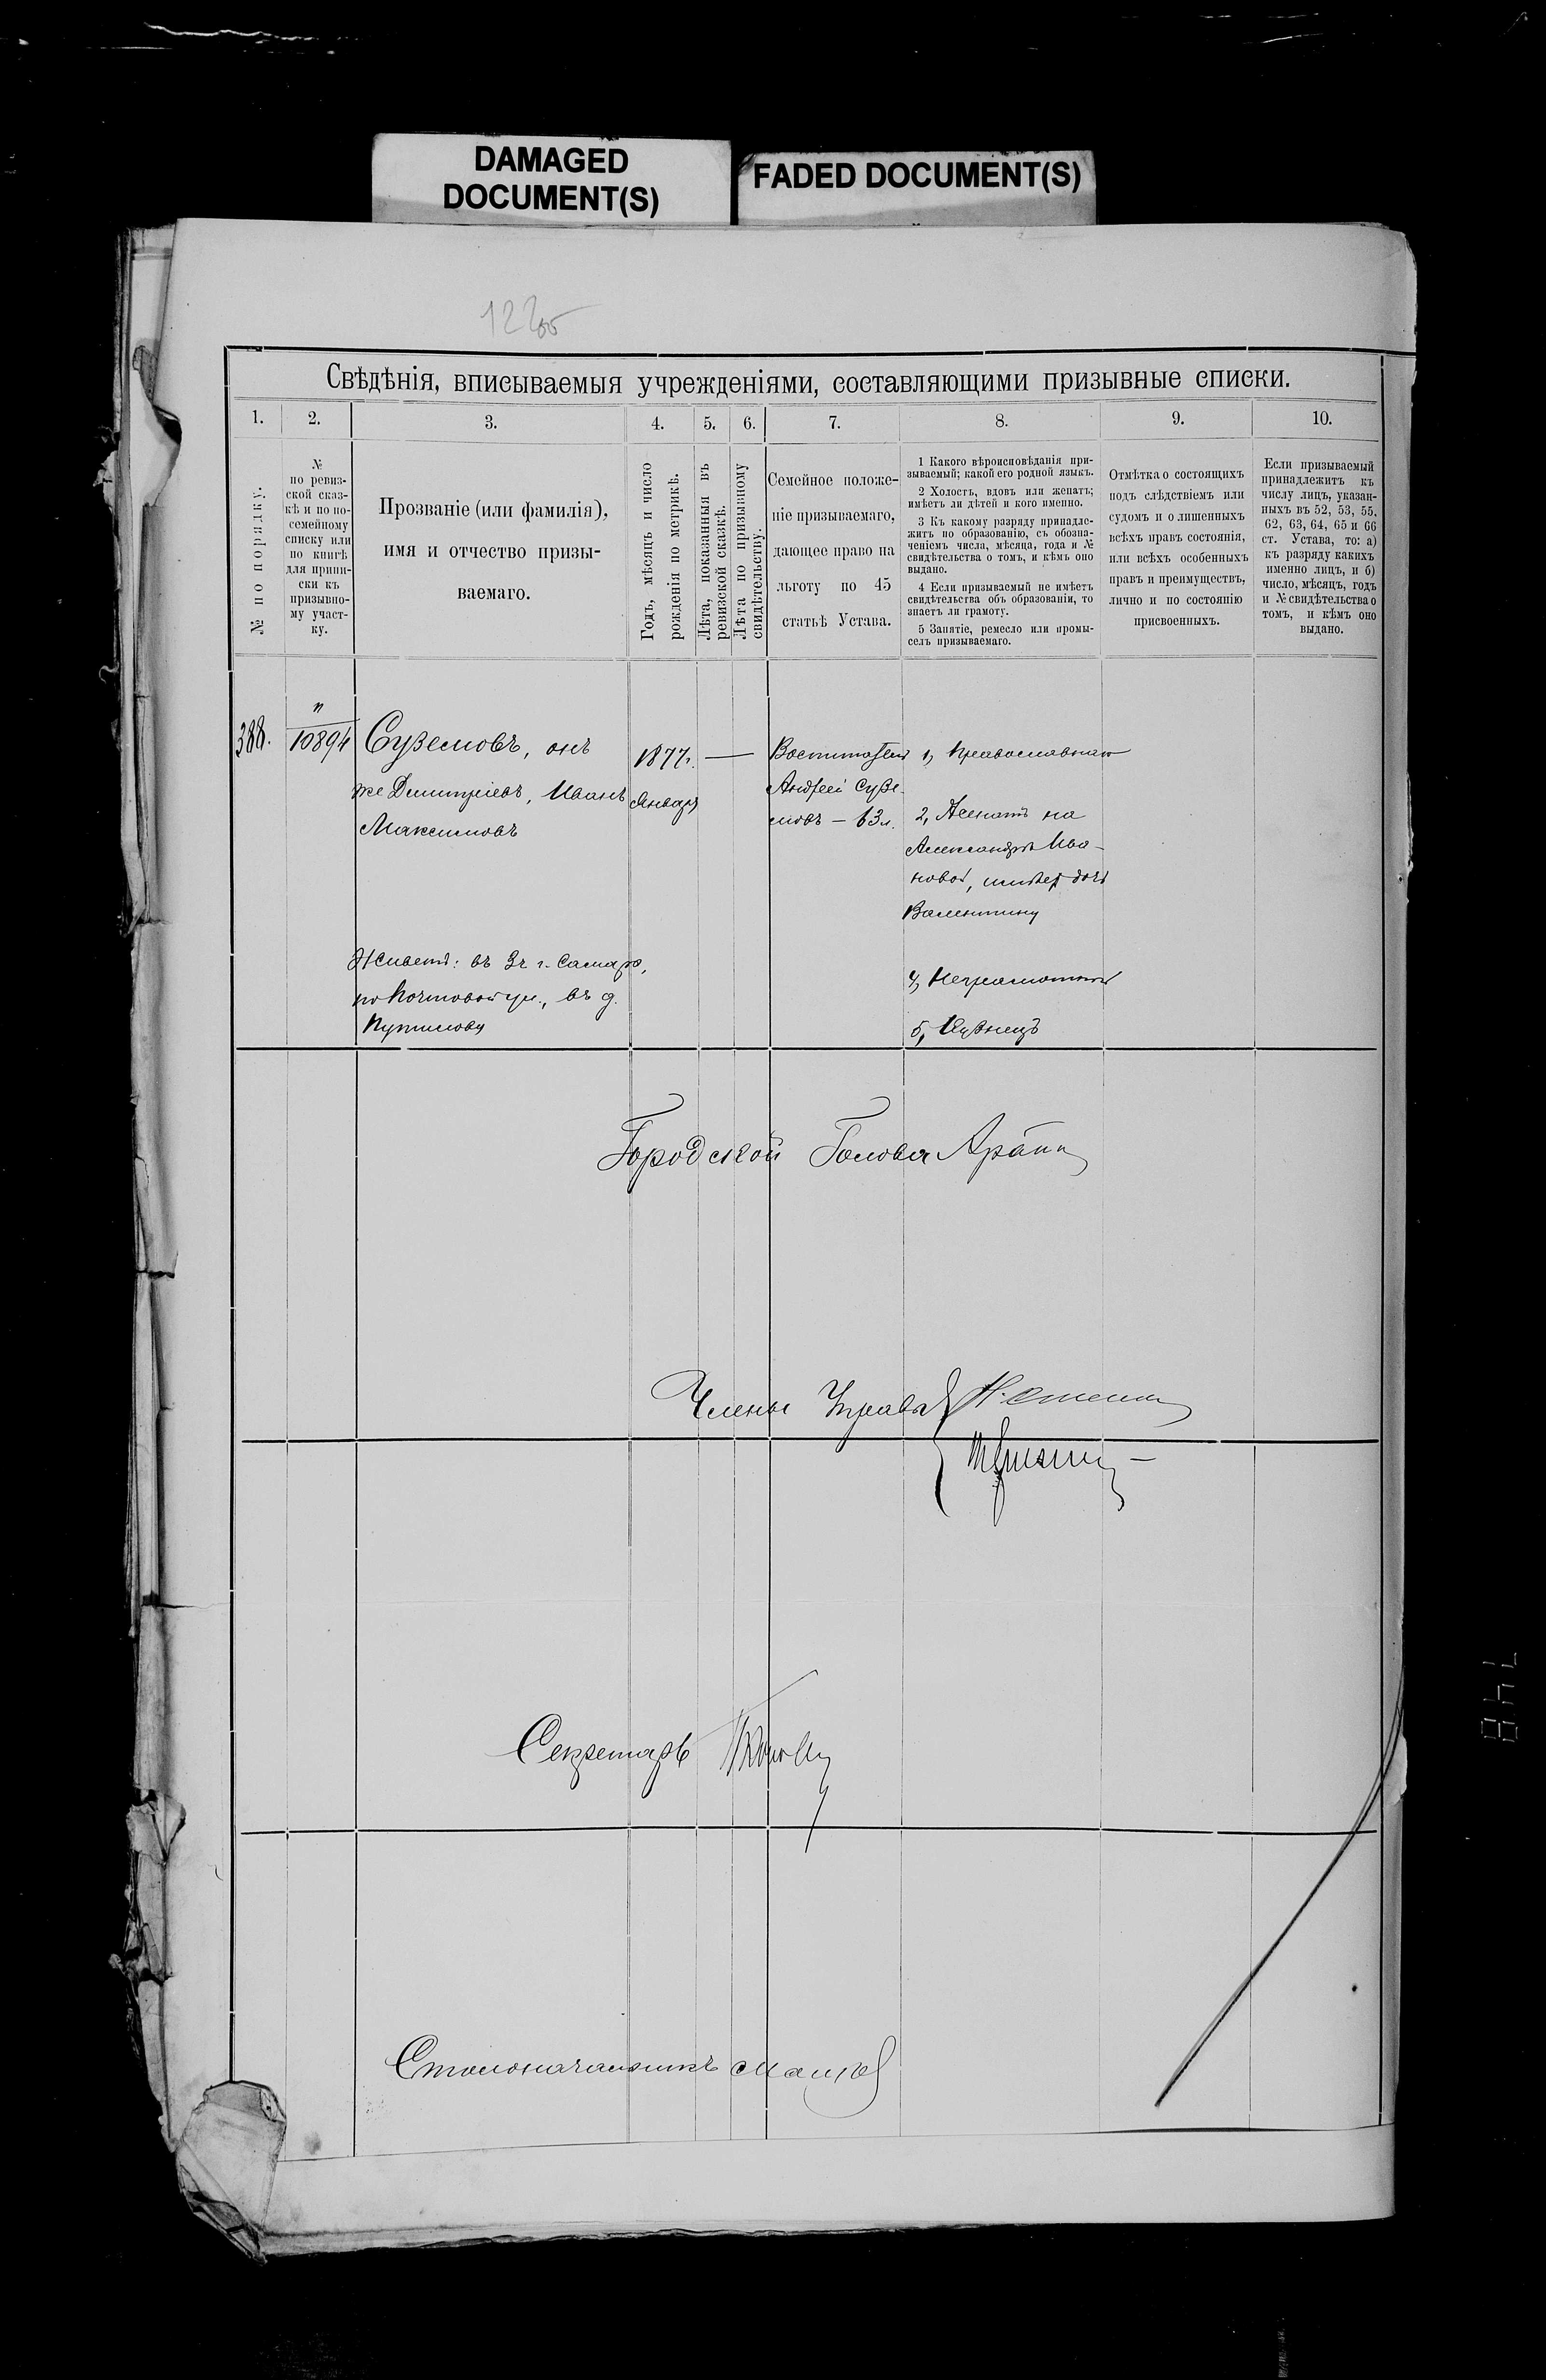 DAMAGED
DOCUMENT(S)
FADED DOCUMENT(S)
Свѣдѣнія, вписываемыя учрежденіями, составляющими призывные списки.
1.
2.
3.
4.
5.
6.
7.
8.
9.
10.
№ по порядку.
№
по ревиз-
ской сказ-
кѣ и по по-
семейному
списку или
по книгѣ
для припи-
ски къ
призывно-
му участ-
ку.
Прозваніе (или фамилія),
имя и отчество призы-
ваемаго.
Годъ, мѣсяцъ и число
рожденія по метрикѣ.
Лѣта, показанныя въ
ревизской сказкѣ.
Лѣта по призывному
свидѣтельству.
Семейное положе-
ніе призываемаго,
дающее право на
льготу по 45
статьѣ Устава.
1 Какого вѣроисповѣданія при-
зываемый; какой его родной языкъ.
2 Холостъ, вдовъ или женатъ;
имѣетъ ли дѣтей и кого именно.
3 Къ какому разряду принадле-
житъ по образованію, съ обозна-
ченіемъ числа, мѣсяца, года и №
свидѣтельства о томъ, и кѣмъ оно
выдано.
4 Если призываемый не имѣетъ
свидѣтельства объ образованіи, то
знаетъ ли грамоту.
5 Занятіе, ремесло или промы-
селъ призываемаго.
Отмѣтка о состоящихъ
подъ слѣдствіемъ или
судомъ и о лишенныхъ
всѣхъ правъ состоянія,
или всѣхъ особенныхъ
правъ и преимуществъ,
лично и по состоянію
присвоенныхъ.
Если призываемый
принадлежитъ къ
числу лицъ, указан-
ныхъ въ 52, 53, 55,
62, 63, 64, 65 и 66
ст. Устава, то: а)
къ разряду какихъ
именно лицъ, и б)
число, мѣсяцъ, годъ
и № свидѣтельства о
томъ, и кѣмъ оно
выдано.
388.
п
10894
Суземовъ, онъ
же Димитріевъ, Иванъ
Максимовъ
Живетъ: въ 3 ч. г. Самары,
по Почтовой ул., въ д.
Путилову
1877 г.
Январь
—
Воспитатель
Андрей Сузе-
мовъ – 63 л.
1, Православнаго
2, Женатъ на
Александрѣ Ива-
новой, имѣетъ дочь
Валентину
4, Неграмотный
5, Кузнецъ
Городской Голова
Члены Управы
Секретарь
Столоначальникъ
748